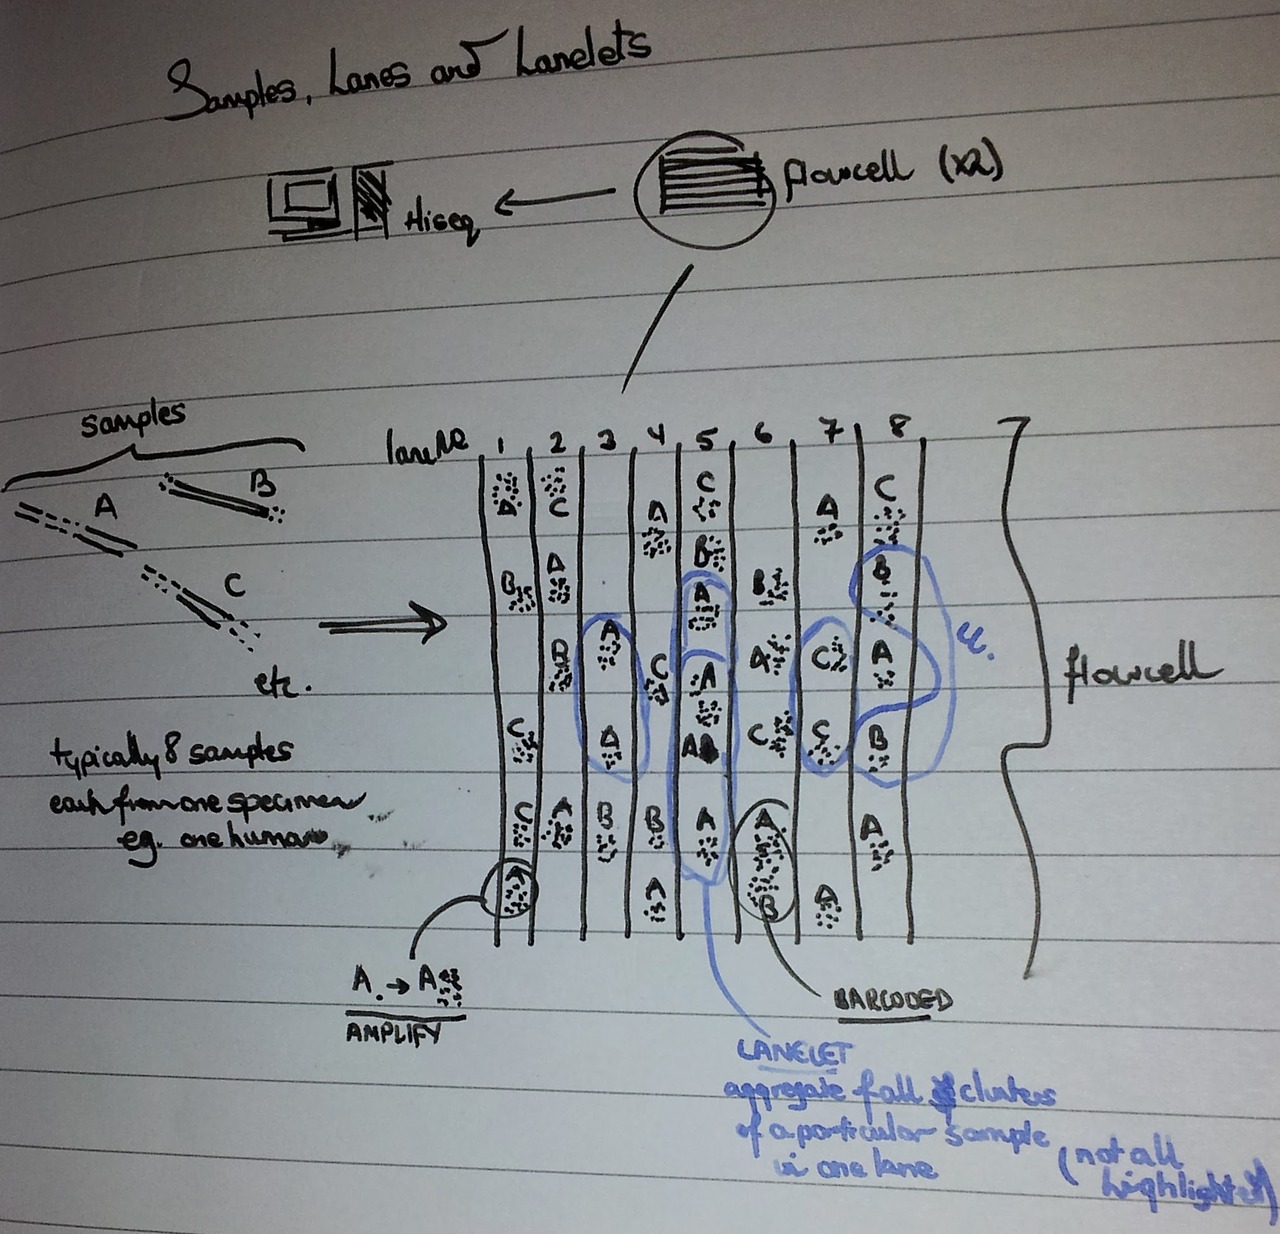 Samples, Lanes and Lanelets
Hiseq
flowcell (x2)
samples
A
B
C
etc.
typically 8 samples
each from one specimen
eg. one human
1 2 3 4 5 6 7 8
A C A C A C
B A B B B
B A C A A C A
C A A B C C B
C A B B A A A
A A B A
flowcell
A. → A
AMPLIFY
BARCODED
LANELET
aggregate of all clusters
of a particular sample
in one lane
(not all
highlighted)